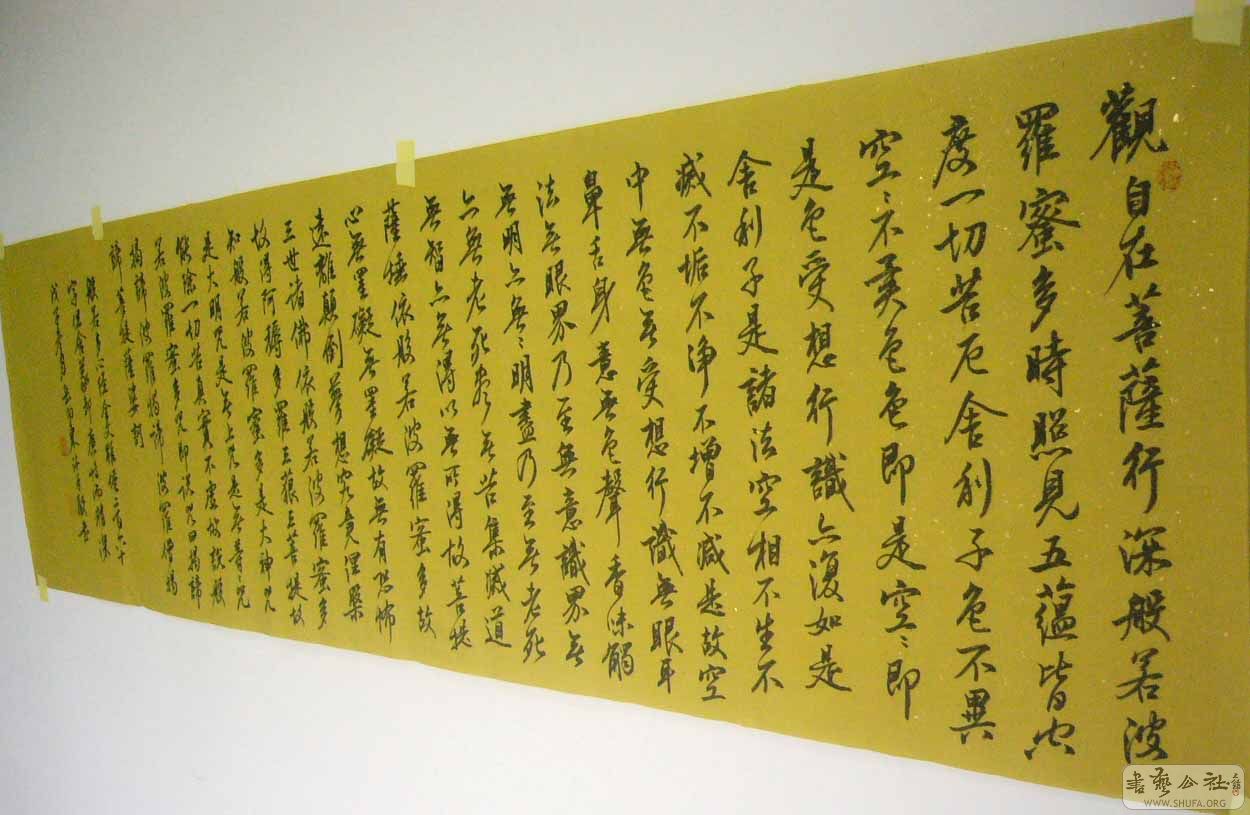 觀自在菩薩行深般若波
羅蜜多時照見五蘊皆空
度一切苦厄舍利子色不異
空空不異色色即是空空即
是色受想行識亦復如是
舍利子是諸法空相不生不
滅不垢不淨不增不減是故空
中無色無受想行識無眼耳
鼻舌身意無色聲香味觸
法無眼界乃至無意識界無
無明亦無無明盡乃至無老死
亦無老死盡無苦集滅道
無智亦無得以無所得故菩提
薩埵依般若波羅蜜多故
心無罣礙無罣礙故無有恐怖
遠離顛倒夢想究竟涅槃
三世諸佛依般若波羅蜜多
故得阿耨多羅三藐三菩提故
知般若波羅蜜多是大神咒
是大明咒是無上咒是無等等咒
能除一切苦真實不虛故說般
若波羅蜜多咒即說咒曰揭諦
揭諦波羅揭諦波羅僧揭
諦菩提薩婆訶
般若多心經全文
書藝公社
WWW.SHUFA.ORG